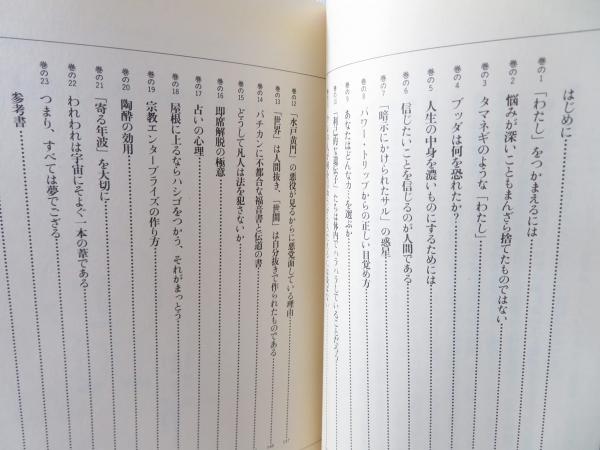 はじめに
巻の1 「わたし」をつかまえるには
巻の2 悩みが深いこともまんざら捨てたものではない
巻の3 タマネギのような「わたし」
巻の4 ブッダは何を恐れたか?
巻の5 人生の中身を濃いものにするためには
巻の6 信じたいことを信じるのが人間である
巻の7 「暗示にかけられたサル」の惑星
巻の8 パワー・トリップからの正しい目覚め方
巻の9 あなたはどんなカミを選ぶか
巻の10 「利己的な遺伝子」たちは体内で
巻の12 「水戸黄門」の悪役が見るからに悪党面している理由
巻の13 「世界」は人間抜き、「世間」は自分抜きで作られたものである
巻の14 バチカンに不都合な福音書と伝道の書
巻の15 どうして凡人は法を犯さないか
巻の16 即席解脱の極意
巻の17 占いの心理
巻の18 屋根に上るならハシゴをつかう、それがまっとう?
巻の19 宗教エンタープライズの作り方
巻の20 陶酔の効用
巻の21 「寄る年波」を大切に
巻の22 われわれは宇宙にそよぐ一本の葦である
巻の23 つまり、すべては夢でござる
参考書